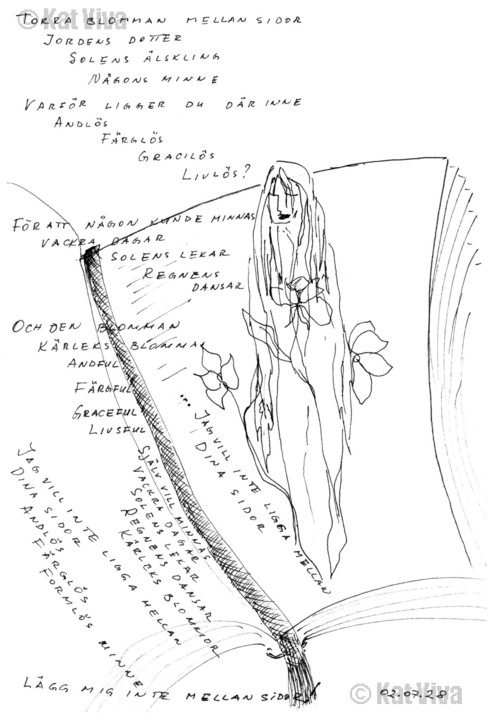 © Kat Viva
TORRA BLOMMAN MELLAN SIDOR
JORDENS DOTTER
SOLENS ÄLSKLING
NÅGONS MINNE
VARFÖR LIGGER DU DÄR INNE
ANDLÖS
FÄRGLÖS
GRACILÖS
LIVLÖS?
FÖR ATT NÅGON KUNDE MINNAS
VACKRA DAGAR
SOLENS LEKAR
REGNENS
DANSAR
OCH DEN BLOMMAN
KÄRLEKS BLOMMA
ANDFUL
FÄRGFUL
GRACEFUL
LIVSFUL
... JAG VILL INTE LIGGA MELLAN
DINA SIDOR
SJÄLV VILL MINNAS
VACKRA DAGAR
SOLENS LEKAR
REGNENS DANSAR
KÄRLEKS BLOMMOR
JAG VILL INTE LIGGA MELLAN
DINA SIDOR
ANDLÖS
FÄRGLÖS
FORMLÖS MINNE
LÄGG MIG INTE MELLAN SIDOR
02.07.28
© Kat Viva